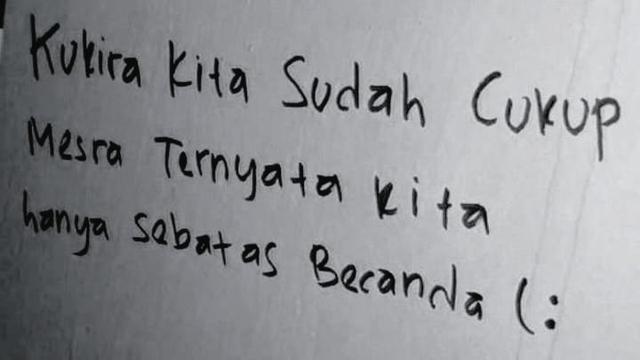 Kukira Kita Sudah Cukup
Mesra Ternyata kita
hanya sebatas Becanda (: